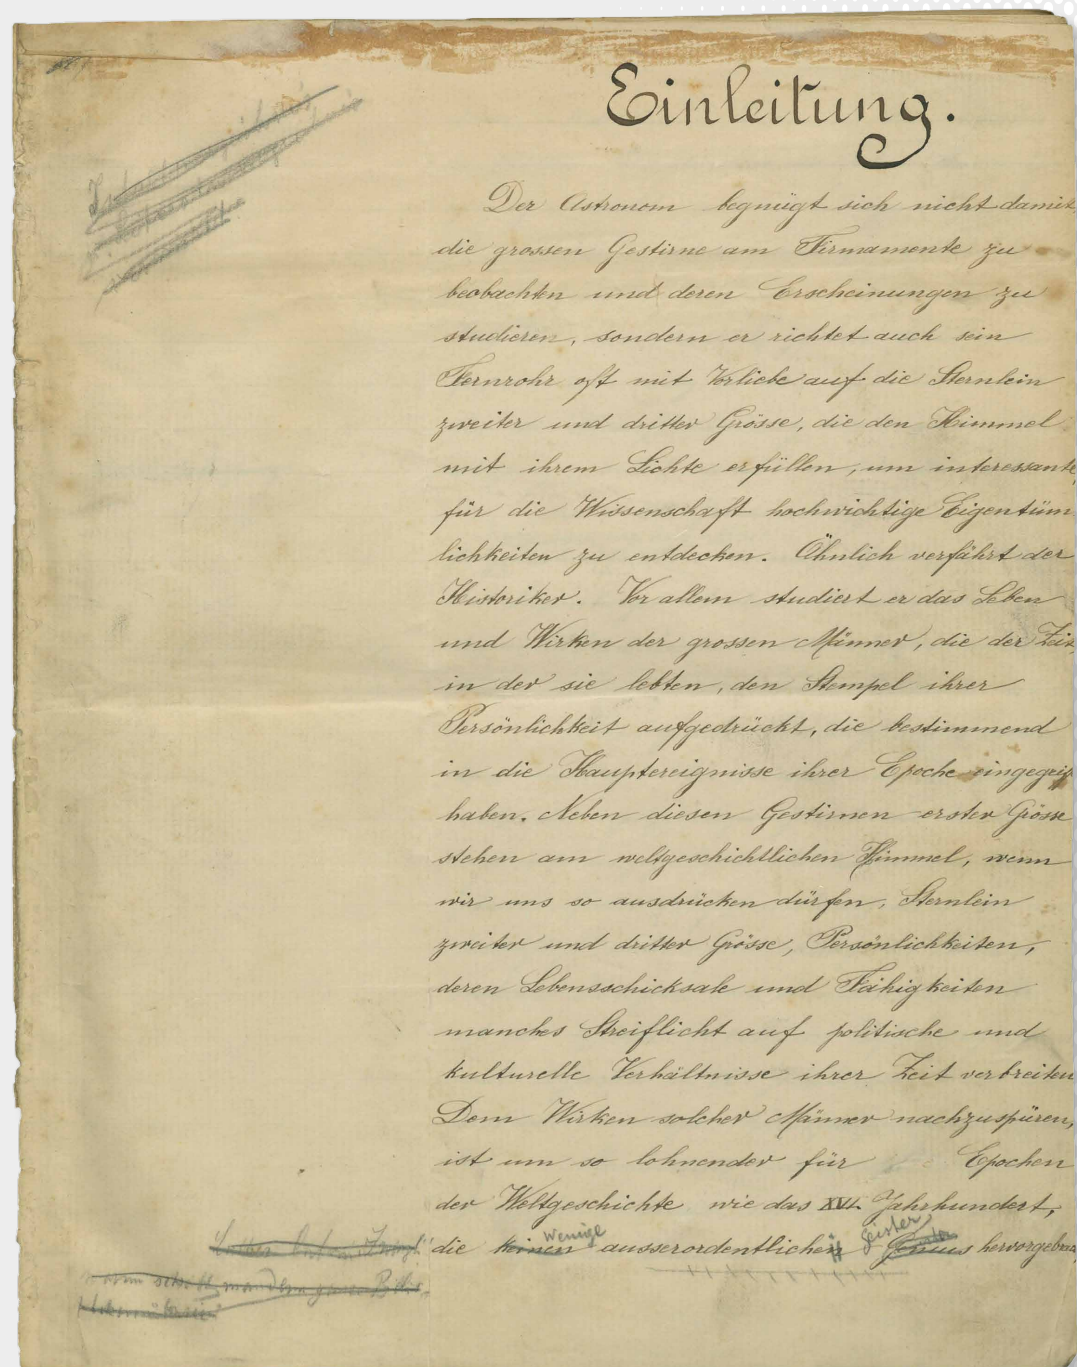 Einleitung.
Der Astronom begnügt sich nicht damit,
die grossen Gestirne am Firmamente zu
beobachten und deren Erscheinungen zu
studieren, sondern er richtet auch sein
Fernrohr oft mit Vorliebe auf die Sternlein
zweiter und dritter Grösse, die den Himmel
mit ihrem Lichte erfüllen, um interessante,
für die Wissenschaft hochwichtige Eigentüm
lichkeiten zu entdecken. Ähnlich verfährt der
Historiker. Vor allem studiert er das Leben
und Wirken der grossen Männer, die der Zeit,
in der sie lebten, den Stempel ihrer
Persönlichkeit aufgedrückt, die bestimmend
in die Hauptereignisse ihrer Epoche
haben. Neben diesen Gestirnen erster Grösse
stehen am weltgeschichtlichen Himmel, wenn
wir uns so ausdrücken dürfen, Sternlein
zweiter und dritter Grösse, Persönlichkeiten,
deren Lebensschicksale und Fähigkeiten
manches Streiflicht auf politische und
kulturelle Verhältnisse ihrer Zeit verbreiten
Dem Wirken solcher Männer nachzuspüren,
ist um so lohnender für Epochen
der Weltgeschichte wie das XVI. Jahrhundert,
wenige Geister
die keinen ausserordentlichen Genius